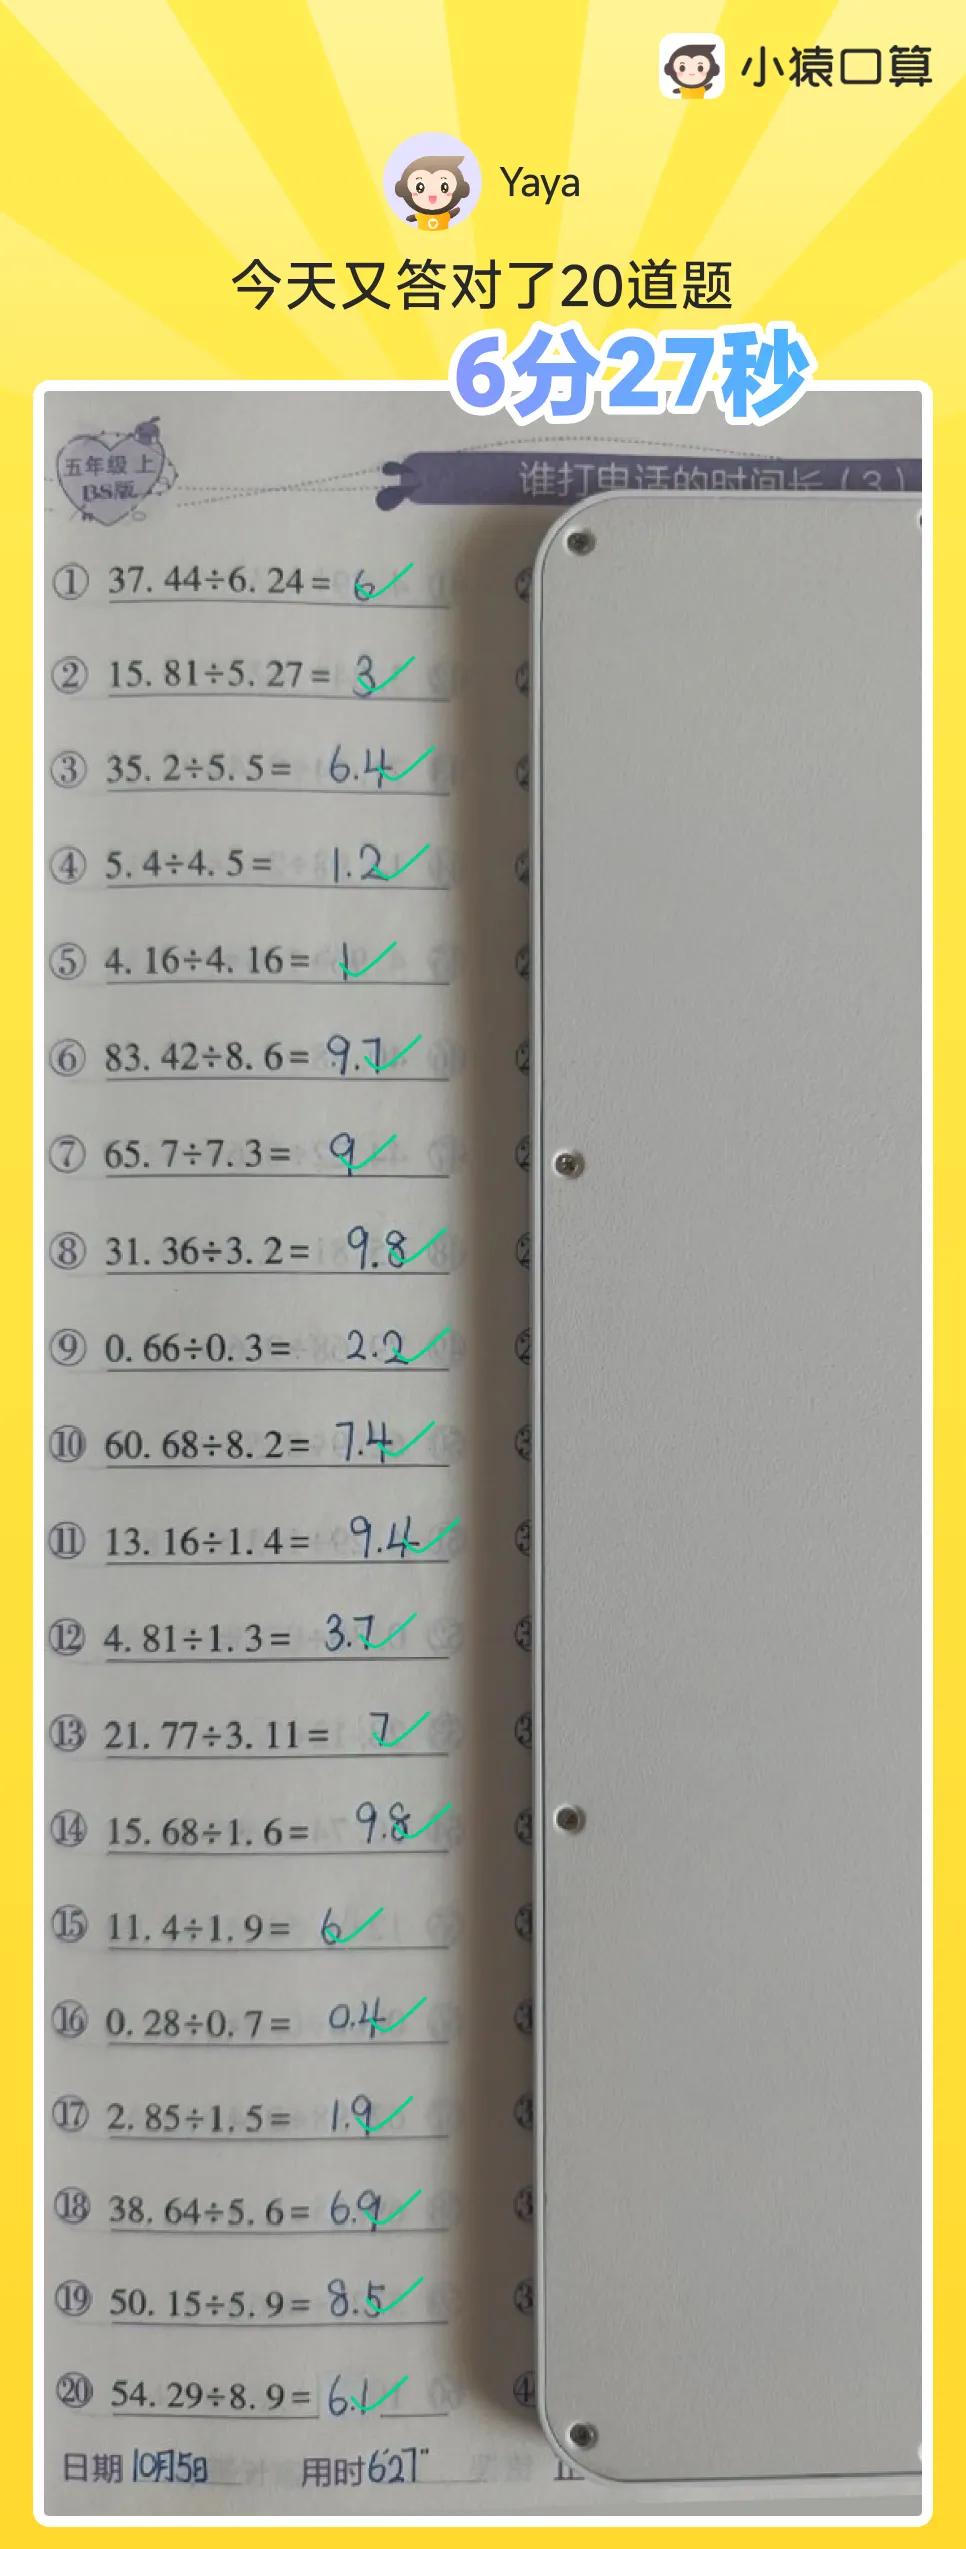 小猿口算
Yaya
今天又答对了20道题
6分27秒
五年级 上
BS版
谁打电话的时间长（3）
① 37.44÷6.24= 6
② 15.81÷5.27= 3
③ 35.2÷5.5= 6.4
④ 5.4÷4.5= 1.2
⑤ 4.16÷4.16= 1
⑥ 83.42÷8.6= 9.7
⑦ 65.7÷7.3= 9
⑧ 31.36÷3.2= 9.8
⑨ 0.66÷0.3= 2.2
⑩ 60.68÷8.2= 7.4
⑪ 13.16÷1.4= 9.4
⑫ 4.81÷1.3= 3.7
⑬ 21.77÷3.11= 7
⑭ 15.68÷1.6= 9.8
⑮ 11.4÷1.9= 6
⑯ 0.28÷0.7= 0.4
⑰ 2.85÷1.5= 1.9
⑱ 38.64÷5.6= 6.9
⑲ 50.15÷5.9= 8.5
⑳ 54.29÷8.9= 6.1
日期 10月5日 用时 6'27"